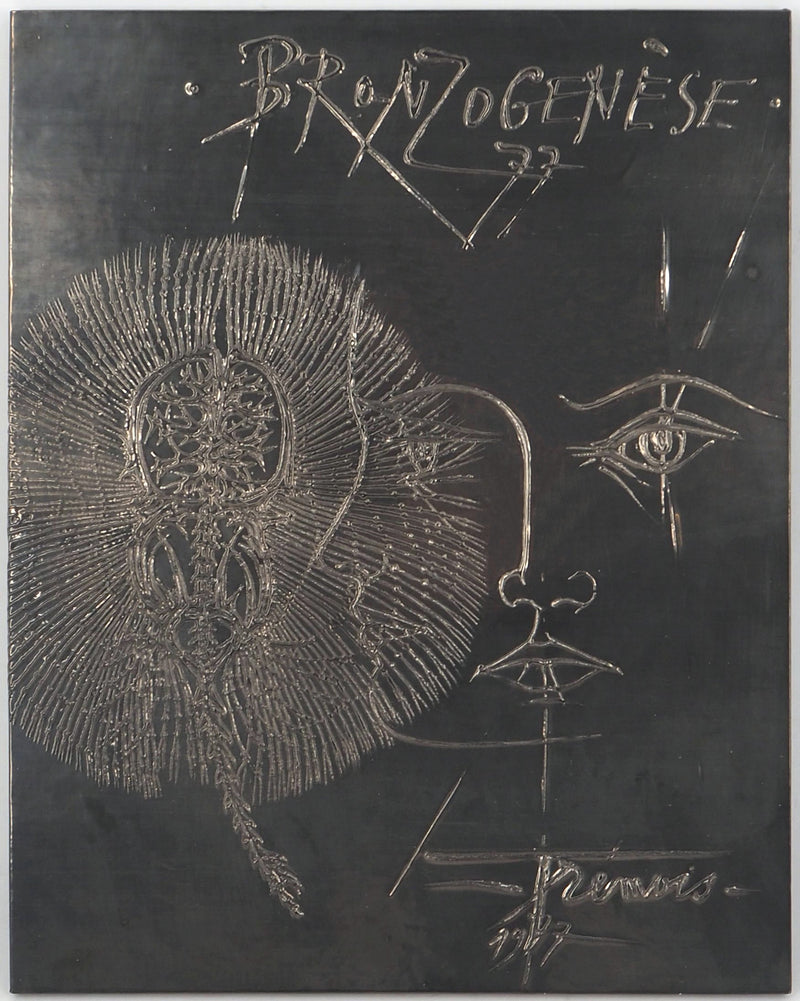 ·BRONZOGENÈSE·
77
Tremois.
1977